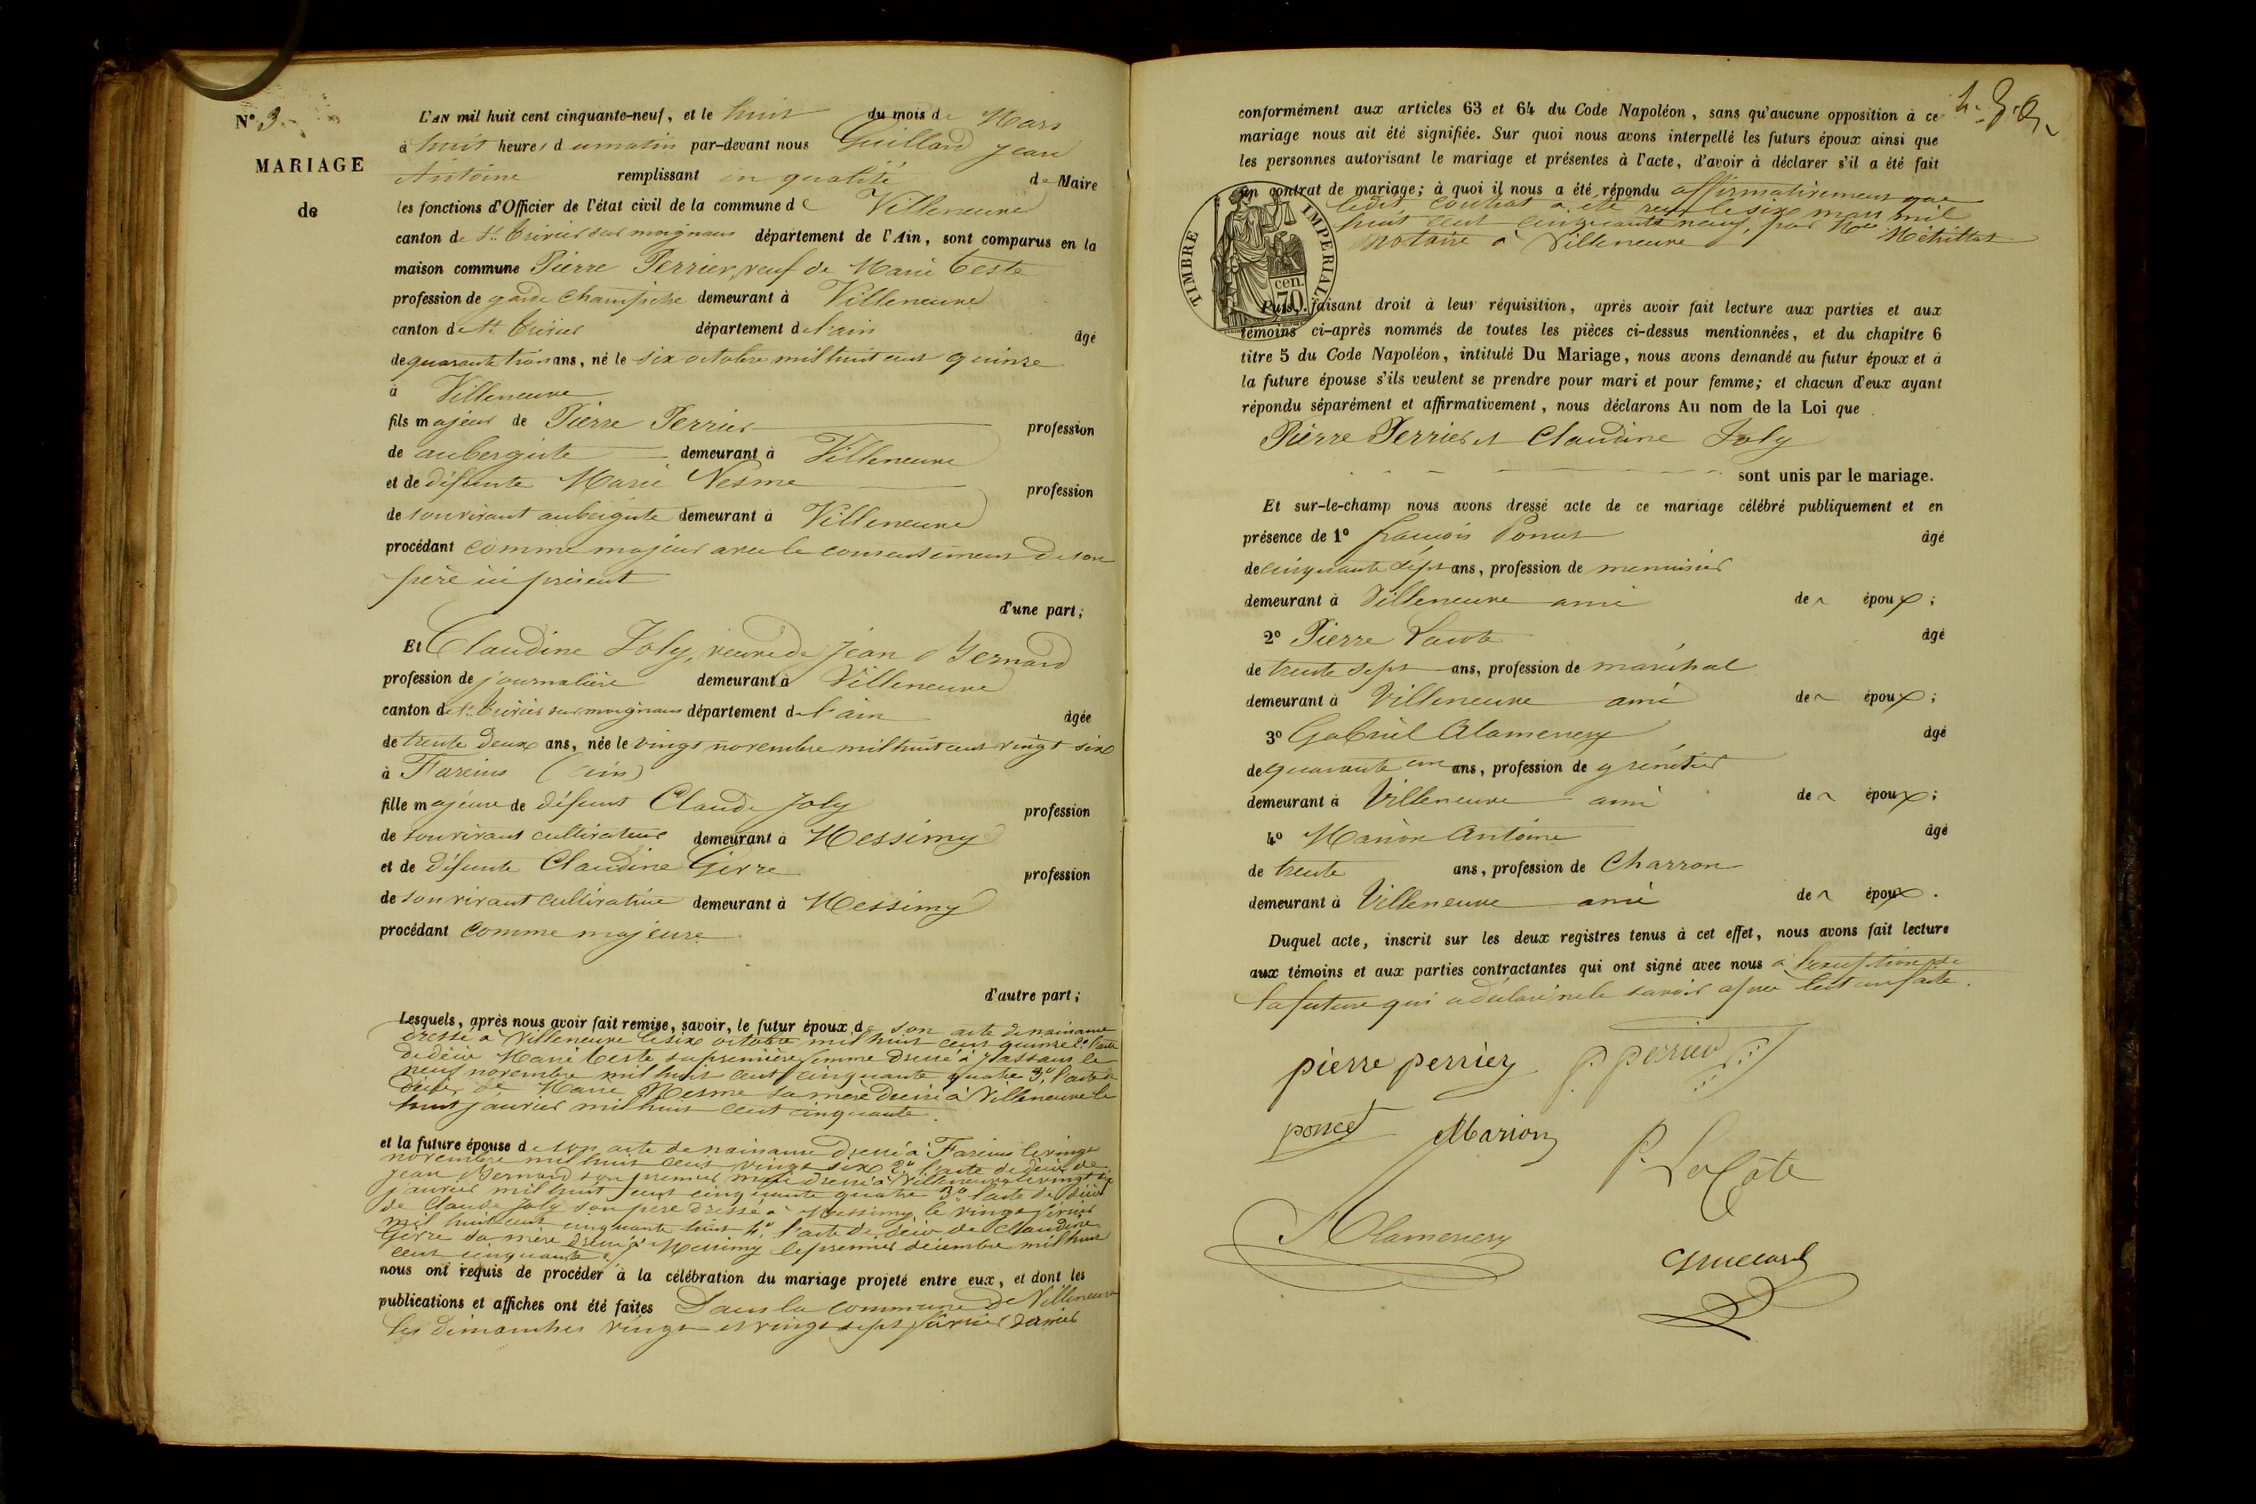 N° 3.
MARIAGE
de
L'AN mil huit cent cinquante-neuf, et le huit du mois de Mars
à huit heures du matin par-devant nous Guillard Jean
Antoine remplissant en qualité de Maire
les fonctions d'Officier de l'état civil de la commune de Villeneuve
canton de St. Trivier sur moignans département de l'Ain, sont comparus en la
maison commune Pierre Perrier, veuf de Marie Teste
profession de garde champêtre demeurant à Villeneuve
canton de St. Trivier département de l'ain âgé
de quarante trois ans, né le six octobre mil huit cent quinze
à Villeneuve
fils majeur de Pierre Perrier profession
de aubergiste demeurant à Villeneuve
et de défunte Marie Nesme profession
de son vivant aubergiste demeurant à Villeneuve
procédant comme majeur avec le consentement de son
père ici présent
d'une part;
Et Claudine Joly, veuve de Jean Bernard
profession de journalière demeurant à Villeneuve
canton de St. Trivier sur moignans département de l'ain âgée
de trente deux ans, née le vingt novembre mil huit cent vingt six
à Fareins (ain)
fille majeure de défunt Claude Joly profession
de son vivant cultivateur demeurant à Messimy
et de défunte Claudine Givre profession
de son vivant cultivatrice demeurant à Messimy
procédant comme majeure
d'autre part;
Lesquels, après nous avoir fait remise, savoir, le futur époux de son acte de naissance
dressé à Villeneuve le six octobre mil huit cent quinze 2° l'acte
de décès Marie Teste sa première femme dressé à Jassans le
neuf novembre mil huit cent cinquante quatre 3° l'acte de
décès de Marie Nesme sa mère dressé à Villeneuve le
huit janvier mil huit cent cinquante.
et la future épouse de son acte de naissance dressé à Fareins le vingt
novembre mil huit cent vingt six 2° l'acte de décès de
Jean Bernard son premier mari dressé à Villeneuve le vingt six
janvier mil huit cent cinquante quatre 3° l'acte de décès
de Claude Joly son père dressé à Messimy le vingt février
mil huit cent cinquante huit 4° l'acte de décès de Claudine
Givre sa mère dressé à Messimy le premier décembre mil huit
cent cinquante
nous ont requis de procéder à la célébration du mariage projeté entre eux, et dont les
publications et affiches ont été faites Dans la commune de Villeneuve
les dimanches vingt et vingt sept février dernier
conformément aux articles 63 et 64 du Code Napoléon, sans qu'aucune opposition à ce
mariage nous ait été signifiée. Sur quoi nous avons interpellé les futurs époux ainsi que
les personnes autorisant le mariage et présentes à l'acte, d'avoir à déclarer s'il a été fait
un contrat de mariage; à quoi il nous a été répondu affirmativement que
ledit contrat a été reçu le six mars mil
huit cent cinquante neuf, par Me
notaire à Villeneuve
TIMBRE IMPERIAL
cen.
70
Puis, faisant droit à leur réquisition, après avoir fait lecture aux parties et aux
témoins ci-après nommés de toutes les pièces ci-dessus mentionnées, et du chapitre 6
titre 5 du Code Napoléon, intitulé Du Mariage, nous avons demandé au futur époux et à
la future épouse s'ils veulent se prendre pour mari et pour femme; et chacun d'eux ayant
répondu séparément et affirmativement, nous déclarons Au nom de la Loi que
Pierre Perrier et Claudine Joly
sont unis par le mariage.
Et sur-le-champ nous avons dressé acte de ce mariage célébré publiquement et en
présence de 1° françois Poncet âgé
de cinquante sept ans, profession de menuisier
demeurant à Villeneuve ami des époux;
2° Pierre Lacote âgé
de trente sept ans, profession de maréchal
demeurant à Villeneuve ami des époux;
3° Gabriel Alamercery âgé
de quarante un ans, profession de grènetier
demeurant à Villeneuve ami des époux;
4° Marion Antoine âgé
de trente ans, profession de Charron
demeurant à Villeneuve ami des époux.
Duquel acte, inscrit sur les deux registres tenus à cet effet, nous avons fait lecture
aux témoins et aux parties contractantes qui ont signé avec nous à l'exception de
la future qui a déclaré ne le savoir après lecture faite.
pierre perrier p perrier
poncet Marion P. LaCôte
Alamercery
Guillard